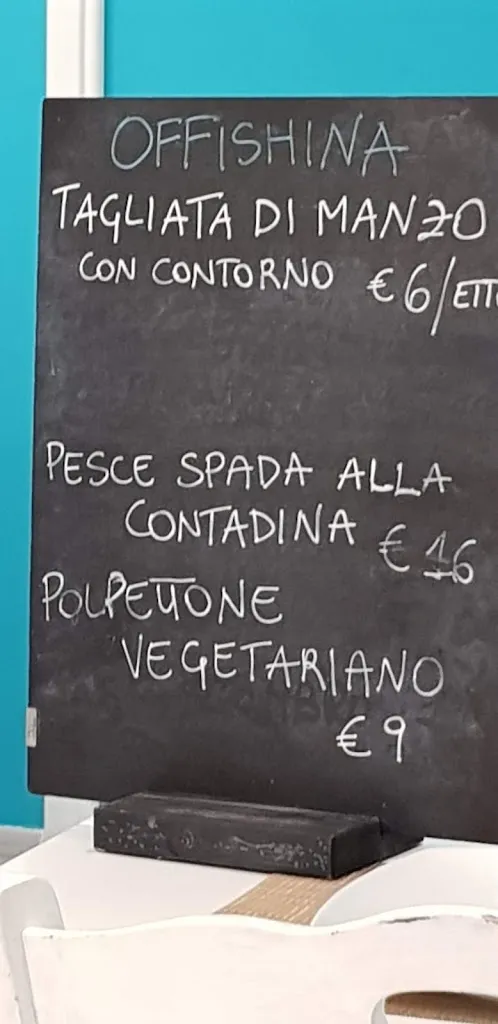 OFFISHINA
TAGLIATA DI MANZO
CON CONTORNO €6/ETT
PESCE SPADA ALLA
CONTADINA €16
POLPETTONE
VEGETARIANO
€9